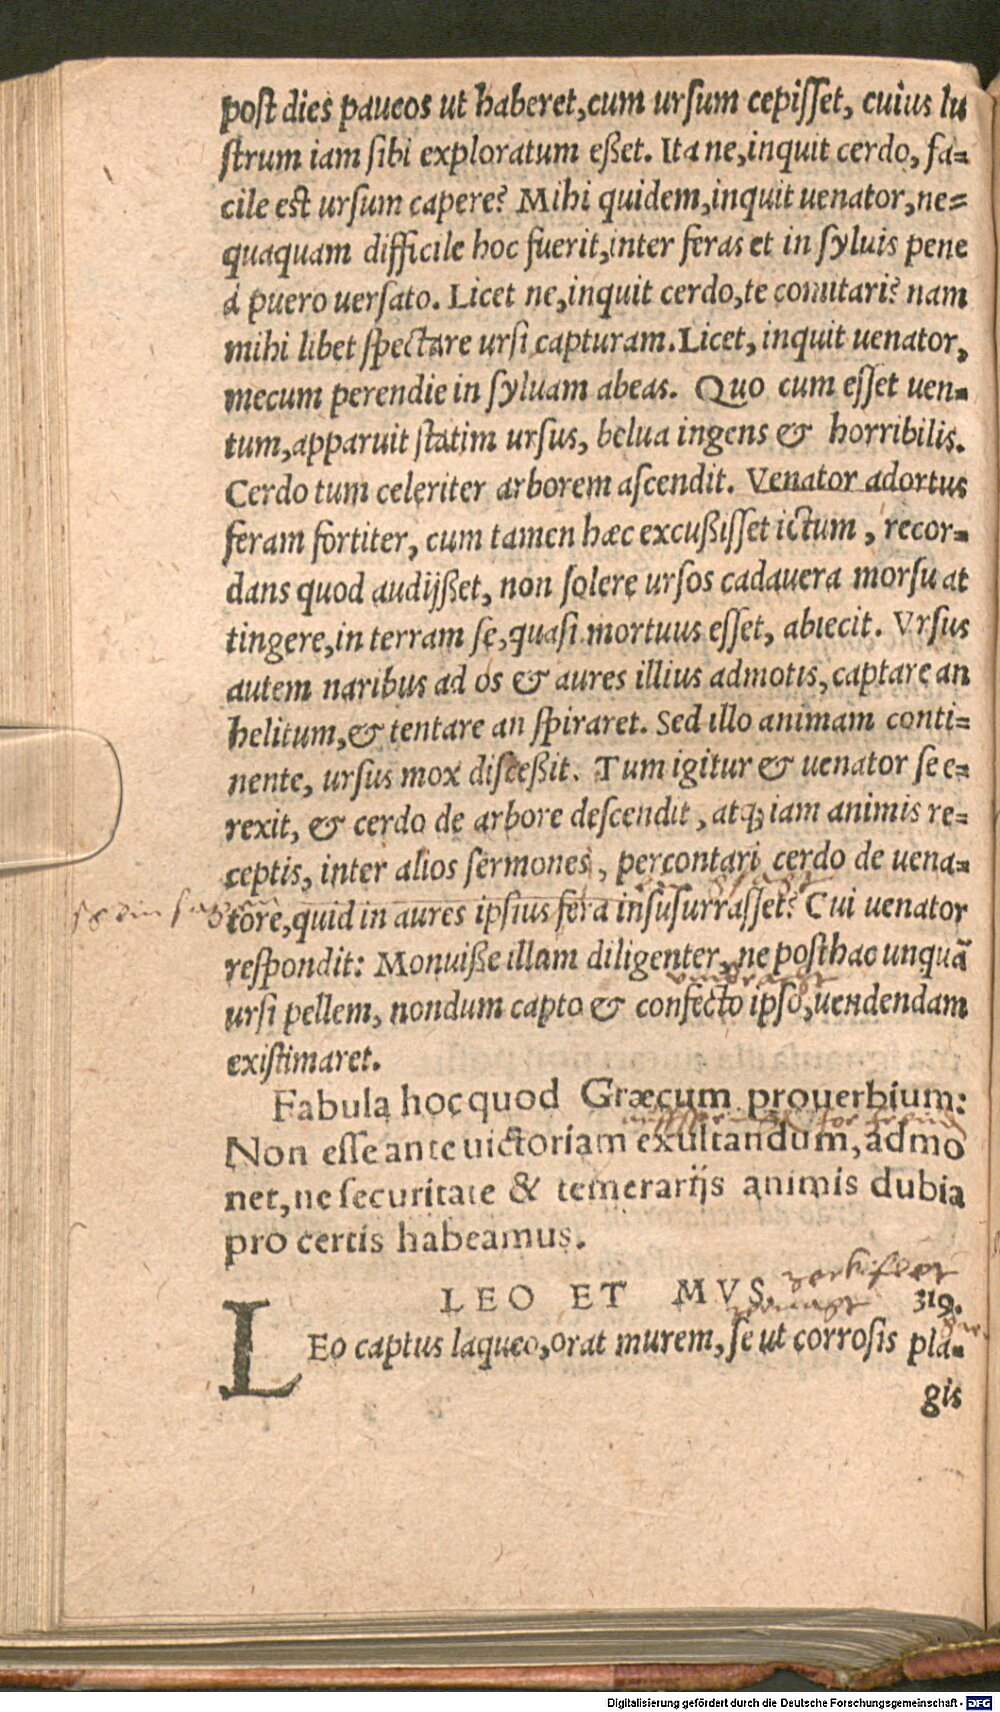 post dies paucos ut haberet, cum ursum cepisset, cuius lu
strum iam sibi exploratum eßet. Ita ne, inquit cerdo, fa=
cile est ursum capere? Mihi quidem, inquit uenator, ne=
quaquam difficile hoc fuerit, inter feras et in syluis pene
à puero uersato. Licet ne, inquit cerdo, te comitari? nam
mihi libet spectare ursi capturam. Licet, inquit uenator,
mecum perendie in syluam abeas. Quo cum esset uen=
tum, apparuit statim ursus, belua ingens & horribilis.
Cerdo tum celeriter arborem ascendit. Venator adortus
feram fortiter, cum tamen hæc excußisset ictum, recor=
dans quod audijßet, non solere ursos cadauera morsu at
tingere, in terram se, quasi mortuus esset, abiecit. Vrsus
autem naribus ad os & aures illius admotis, captare an
helitum, & tentare an spiraret. Sed illo animam conti=
nente, ursus mox disceßit. Tum igitur & uenator se e=
rexit, & cerdo de arbore descendit, atq; iam animis re=
ceptis, inter alios sermones, percontari cerdo de uena=
tore, quid in aures ipsius fera insusurrasset? Cui uenator
respondit: Monuiße illam diligenter, ne posthac unquã
ursi pellem, nondum capto & confecto ipso, uendendam
existimaret.
Fabula hoc quod Græcum prouerbium:
Non esse ante uictoriam exultandum, admo
net, ne securitate & temerarijs animis dubia
pro certis habeamus.
LEO ET MVS. 319.
LEo captus laqueo, orat murem, se ut corrosis pla=
gis
Digitalisierung gefördert durch die Deutsche Forschungsgemeinschaft - DFG